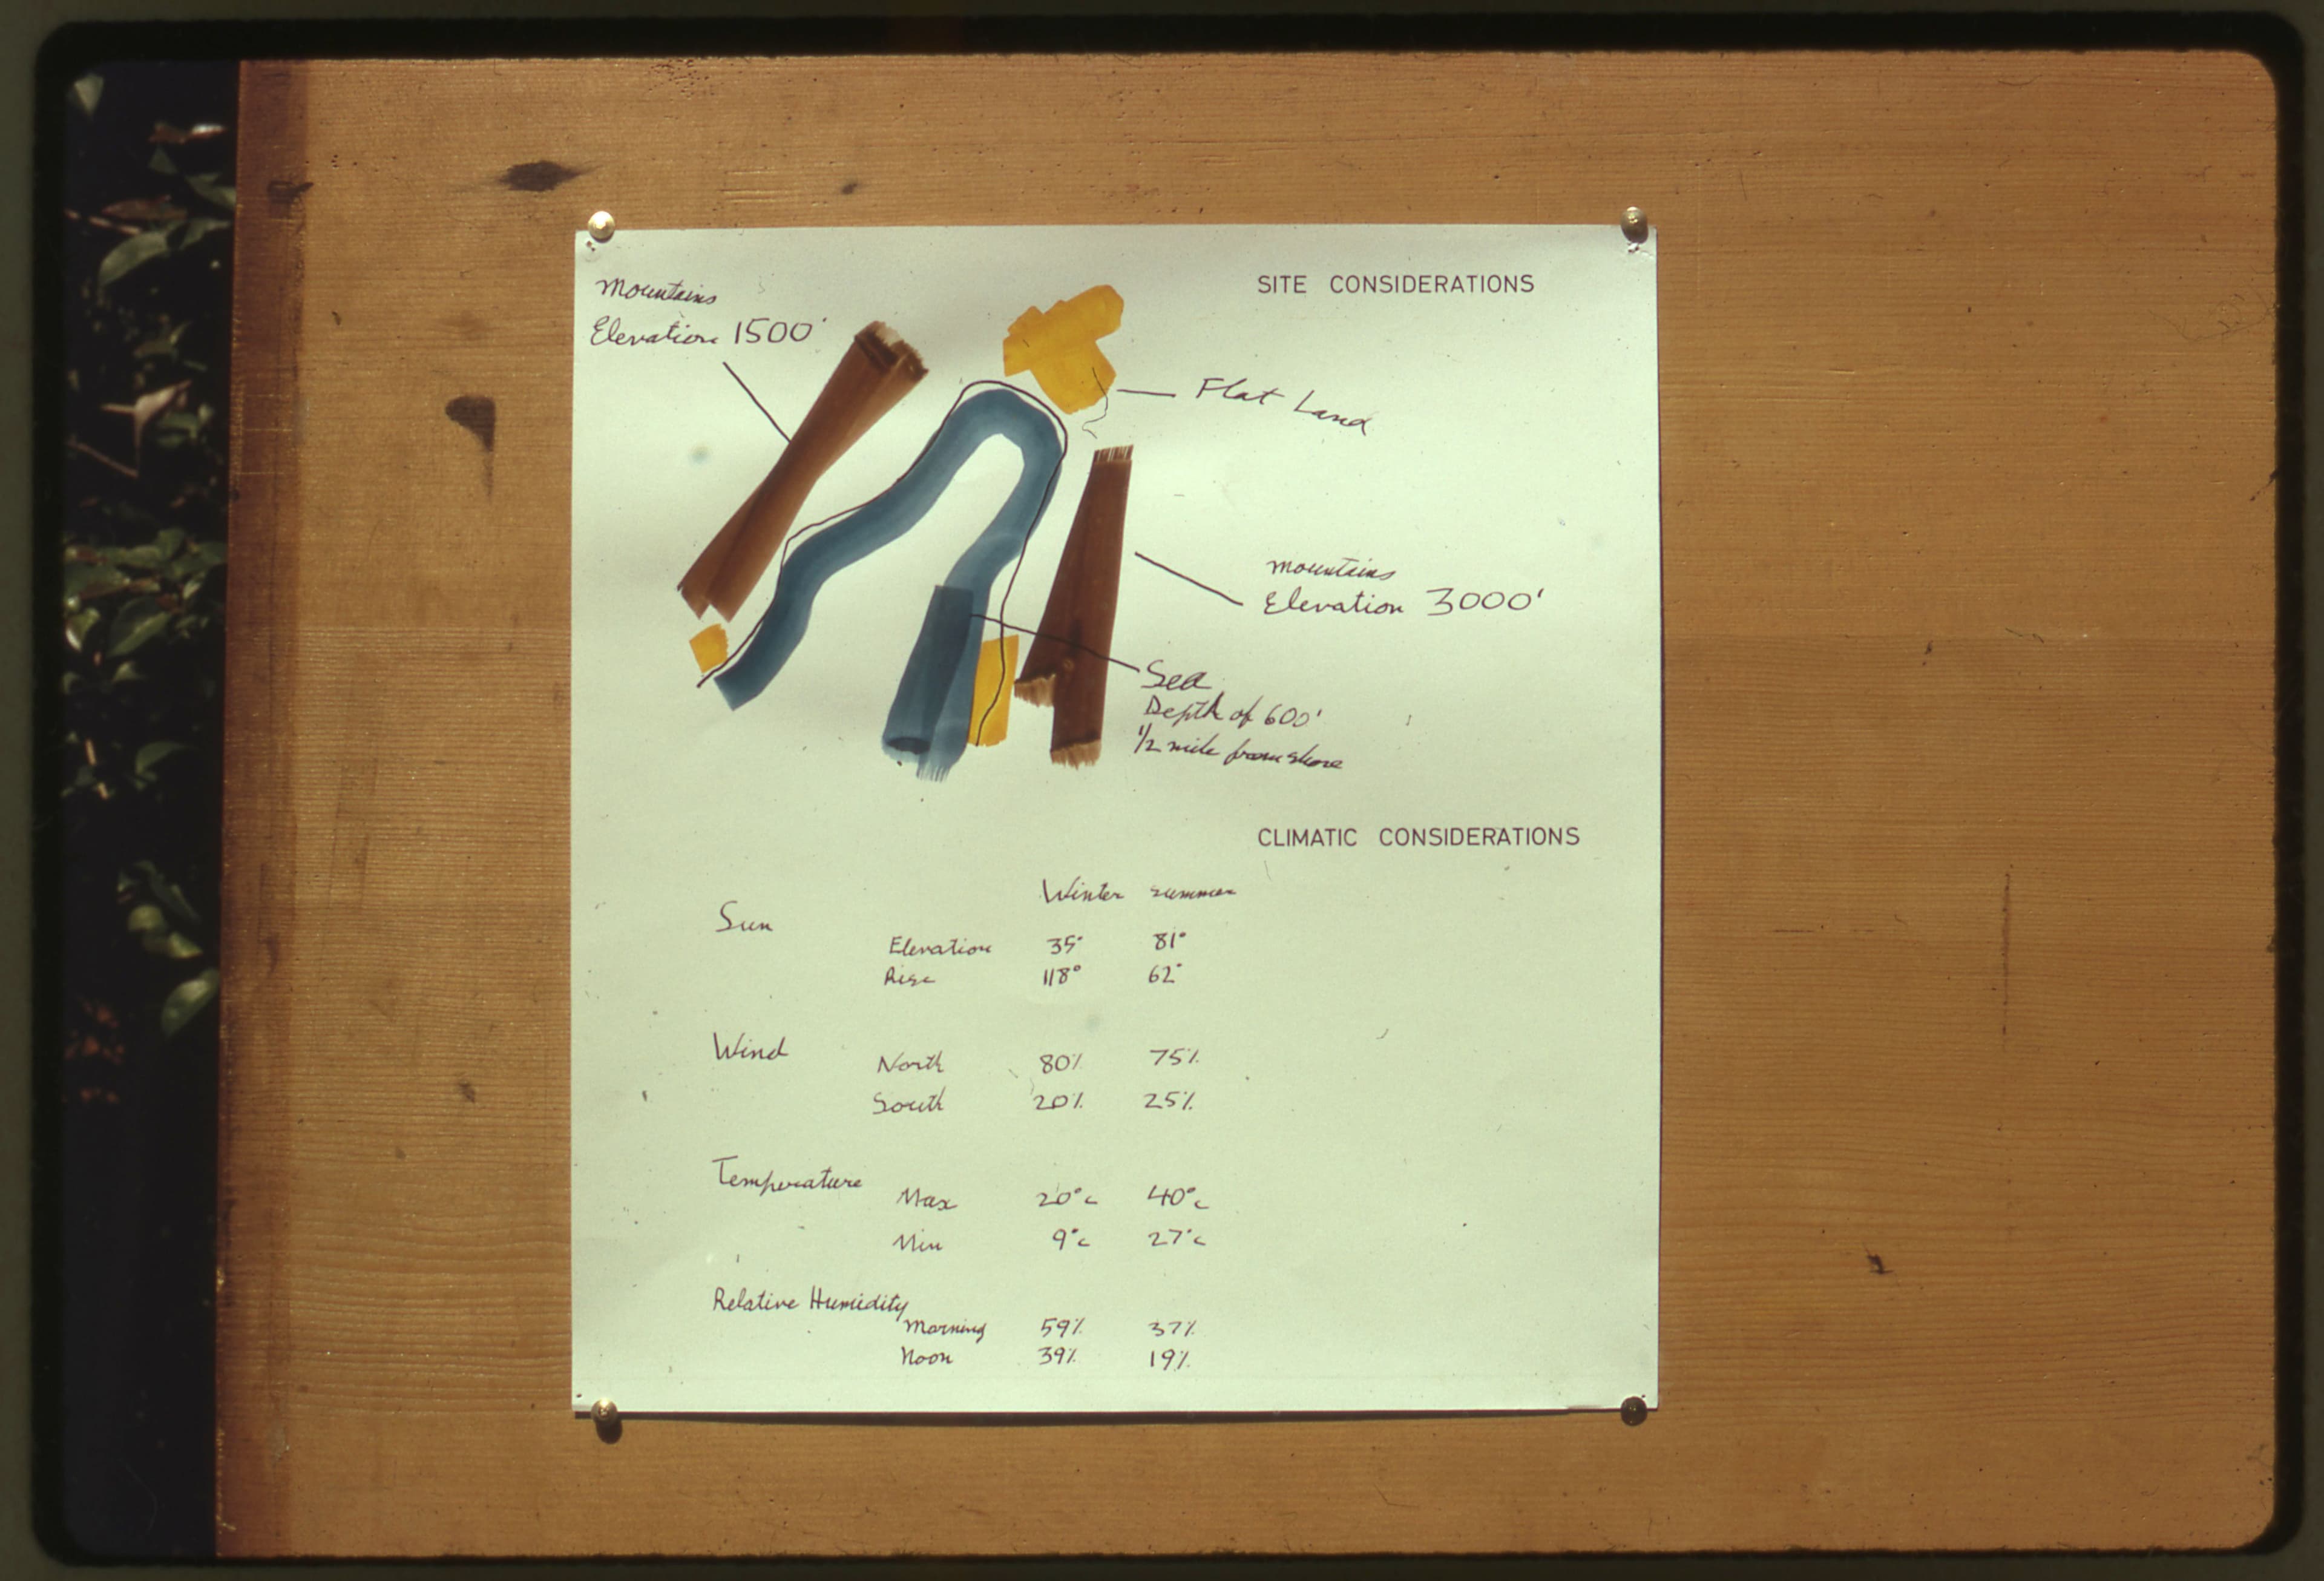 SITE CONSIDERATIONS
Mountains
Elevation 1500'
Flat Land
mountains
Elevation 3000'
Sea
Depth of 600'
1/2 mile from shore
CLIMATIC CONSIDERATIONS
Winter summer
Sun
Elevation 35° 81°
Rise 118° 62°
Wind
North 80% 75%
South 20% 25%
Temperature
Max 20°c 40°c
Min 9°c 27°c
Relative Humidity
Morning 59% 37%
Noon 39% 19%